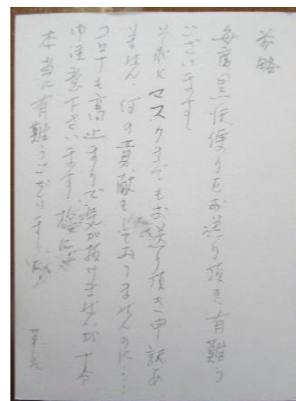 前略
毎度 お便りをお送り頂き有難う
ございます
マスクまでもお送り頂き申訳あ
りません、何の貢献もしておりませんのに…
コロナも高止まりで気が抜けませんが十分
御注意下さいます様に
本当に有難うございました
草々